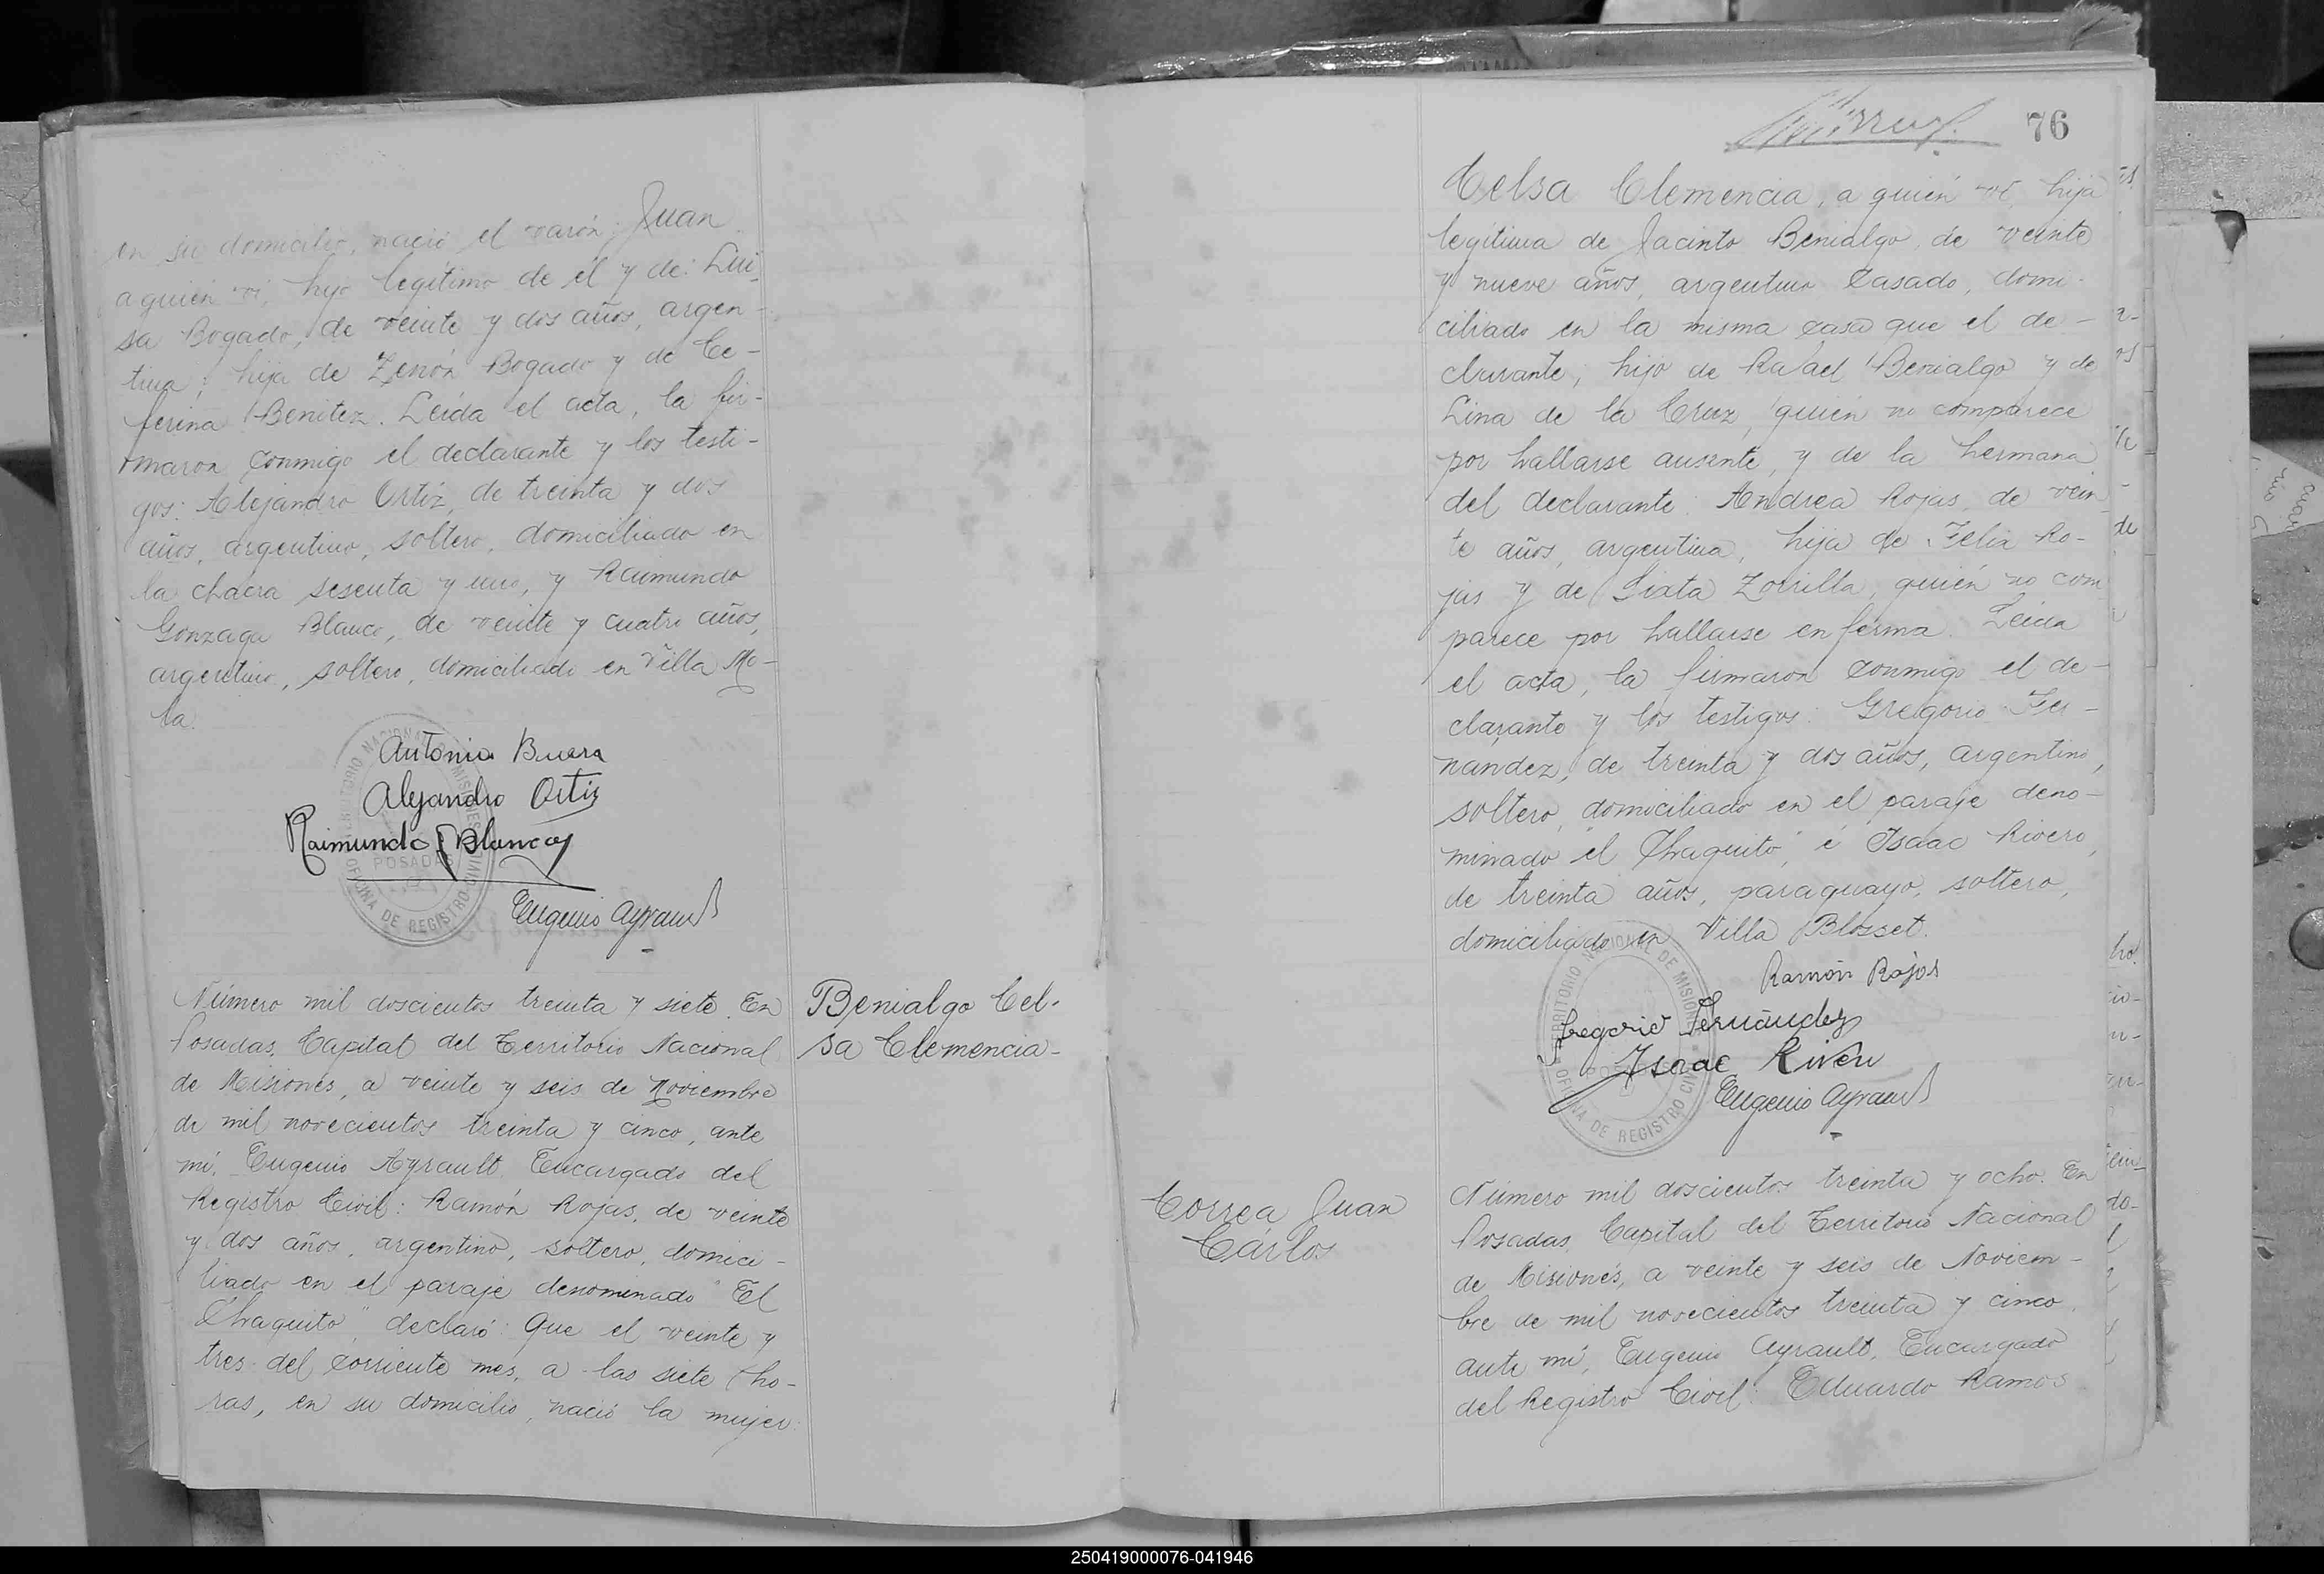 en su domicilio, nació el varón: Juan
a quién vi, hijo legítimo de él y de: Lui-
sa Bogado, de veinte y dos años, argen-
tina; hija de Zenón Bogado y de Ce-
ferina Benitez. Leída el acta, la fir-
maron conmigo el declarante y los testi-
gos: Alejandro Ortíz, de treinta y dos
años, argentino, soltero, domiciliado en
la chacra sesenta y uno, y Raimundo
Gonzaga Blanco, de veinte y cuatro años,
argentino, soltero, domiciliado en Villa Mo-
la.
Antonio
Alejandro Ortiz
Raimundo Blanco
Eugenio Ayrault
TERRITORIO NACIONAL DE MISIONES
POSADAS
OFICINA DE REGISTRO CIVIL
Número mil doscientos treinta y siete. En
Posadas, Capital del Territorio Nacional
de Misiones, a veinte y seis de Noviembre
de mil novecientos treinta y cinco, ante
mí, Eugenio Ayrault Encargado del
Registro Civil: Ramón Rojas, de veinte
y dos años, argentino, soltero, domici-
liado en el paraje denominado "El
Chaquito", declaró: Que el veinte y
tres del corriente mes, a las siete ho-
ras, en su domicilio, nació la mujer:
Benialgo Cel-
sa Clemencia-
76
Celsa Clemencia, a quién vi, hija
legítima de Jacinto Benialgo, de veinte
y nueve años, argentino casado, domi-
ciliado en la misma casa que el de-
clarante, hijo de Rafael Benialgo y de
Lina de la Cruz, quién no comparece
por hallarse ausente, y de la hermana
del declarante: Andrea Rojas, de vein-
te años, argentina, hija de Felix Ro-
jas y de Sixta Zorrilla, quién no com
parece por hallarse enferma. Leída
el acta, la firmaron conmigo el de-
clarante y los testigos: Gregorio Fer-
nandez, de treinta y dos años, argentino,
soltero, domiciliado en el paraje deno-
minado "el Chaquito", é Isaac Rivero,
de treinta años, paraguayo, soltero,
domiciliado en Villa Blosset.
Ramón Rojas
Gregorio Fernández
Isaac Rivero
Eugenio Ayrault
TERRITORIO NACIONAL DE MISIONES
POSADAS
OFICINA DE REGISTRO CIVIL
Correa Juan
Cárlos
Número mil doscientos treinta y ocho. En
Posadas, Capital del Territorio Nacional
de Misiones, a veinte y seis de Noviem-
bre de mil novecientos treinta y cinco,
ante mí, Eugenio Ayrault, Encargado
del Registro Civil: Eduardo Ramos
250419000076-041946